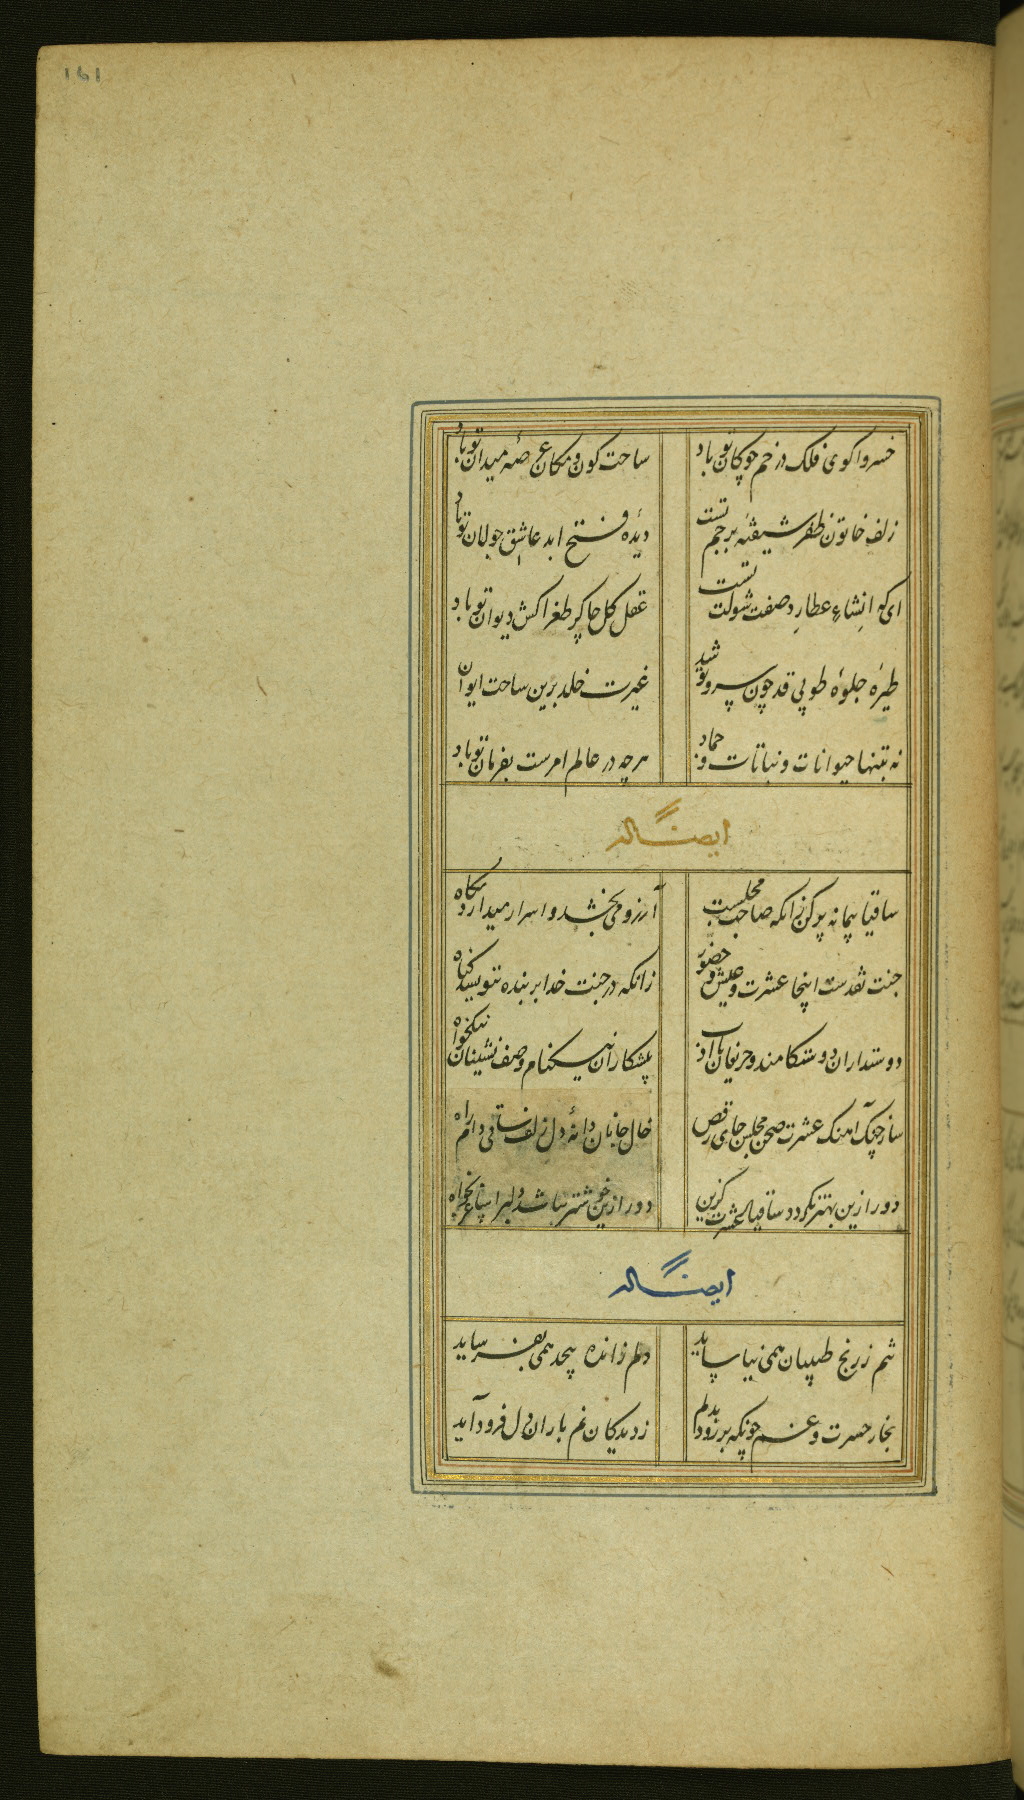 ۱۶۱
خسروا کوی فلک در خم چوکان تو باد
ساحت کون و مکان عرصهٔ میدان تو باد
زلف خاتون ظفر شیفتهٔ پرچم تست
دیدهٔ فتح ابد عاشق جولان تو باد
ای که انشاء عطارد صفت شوکت تست
عقل کل چاکر طغراکش دیوان تو باد
طیرهٔ جلوهٔ طوبی قد چون سرو تو شد
غیرت خلد برین ساحت ایوان
نه بتنها حیوانات و نباتات و جماد
هرچه در عالم امرست بفرمان تو باد
ایضا له
ساقیا پیمانه پر کن زانکه صاحب مجلست
آرزو می بخشد و اسرار میدارد نکاه
جنت نقدست اینجا عشرت و عیش و حضور
زانکه در جنت خدا بر بنده ننویسد کناه
دوستداران دوستکامند و حریفان با ادب
پیشکاران نیکنام و صف نشینان نیکخواه
ساز چنک آهنک عشرت صحن مجلس جای رقص
خال جانان دانهٔ دل زلف ساقی دام راه
دور ازین بهتر نکردد ساقیا عشرت کزین
دور ازین خوشتر نباشد دلبرا ساغر بخواه
ایضا له
تنم ز رنج طبیبان همی نیاساید
دلم ز انده بیحد همی بفرساید
بخار حسرت و غم چونکه بر رود بدلم
ز دیدکان نم باران دل فرود آید